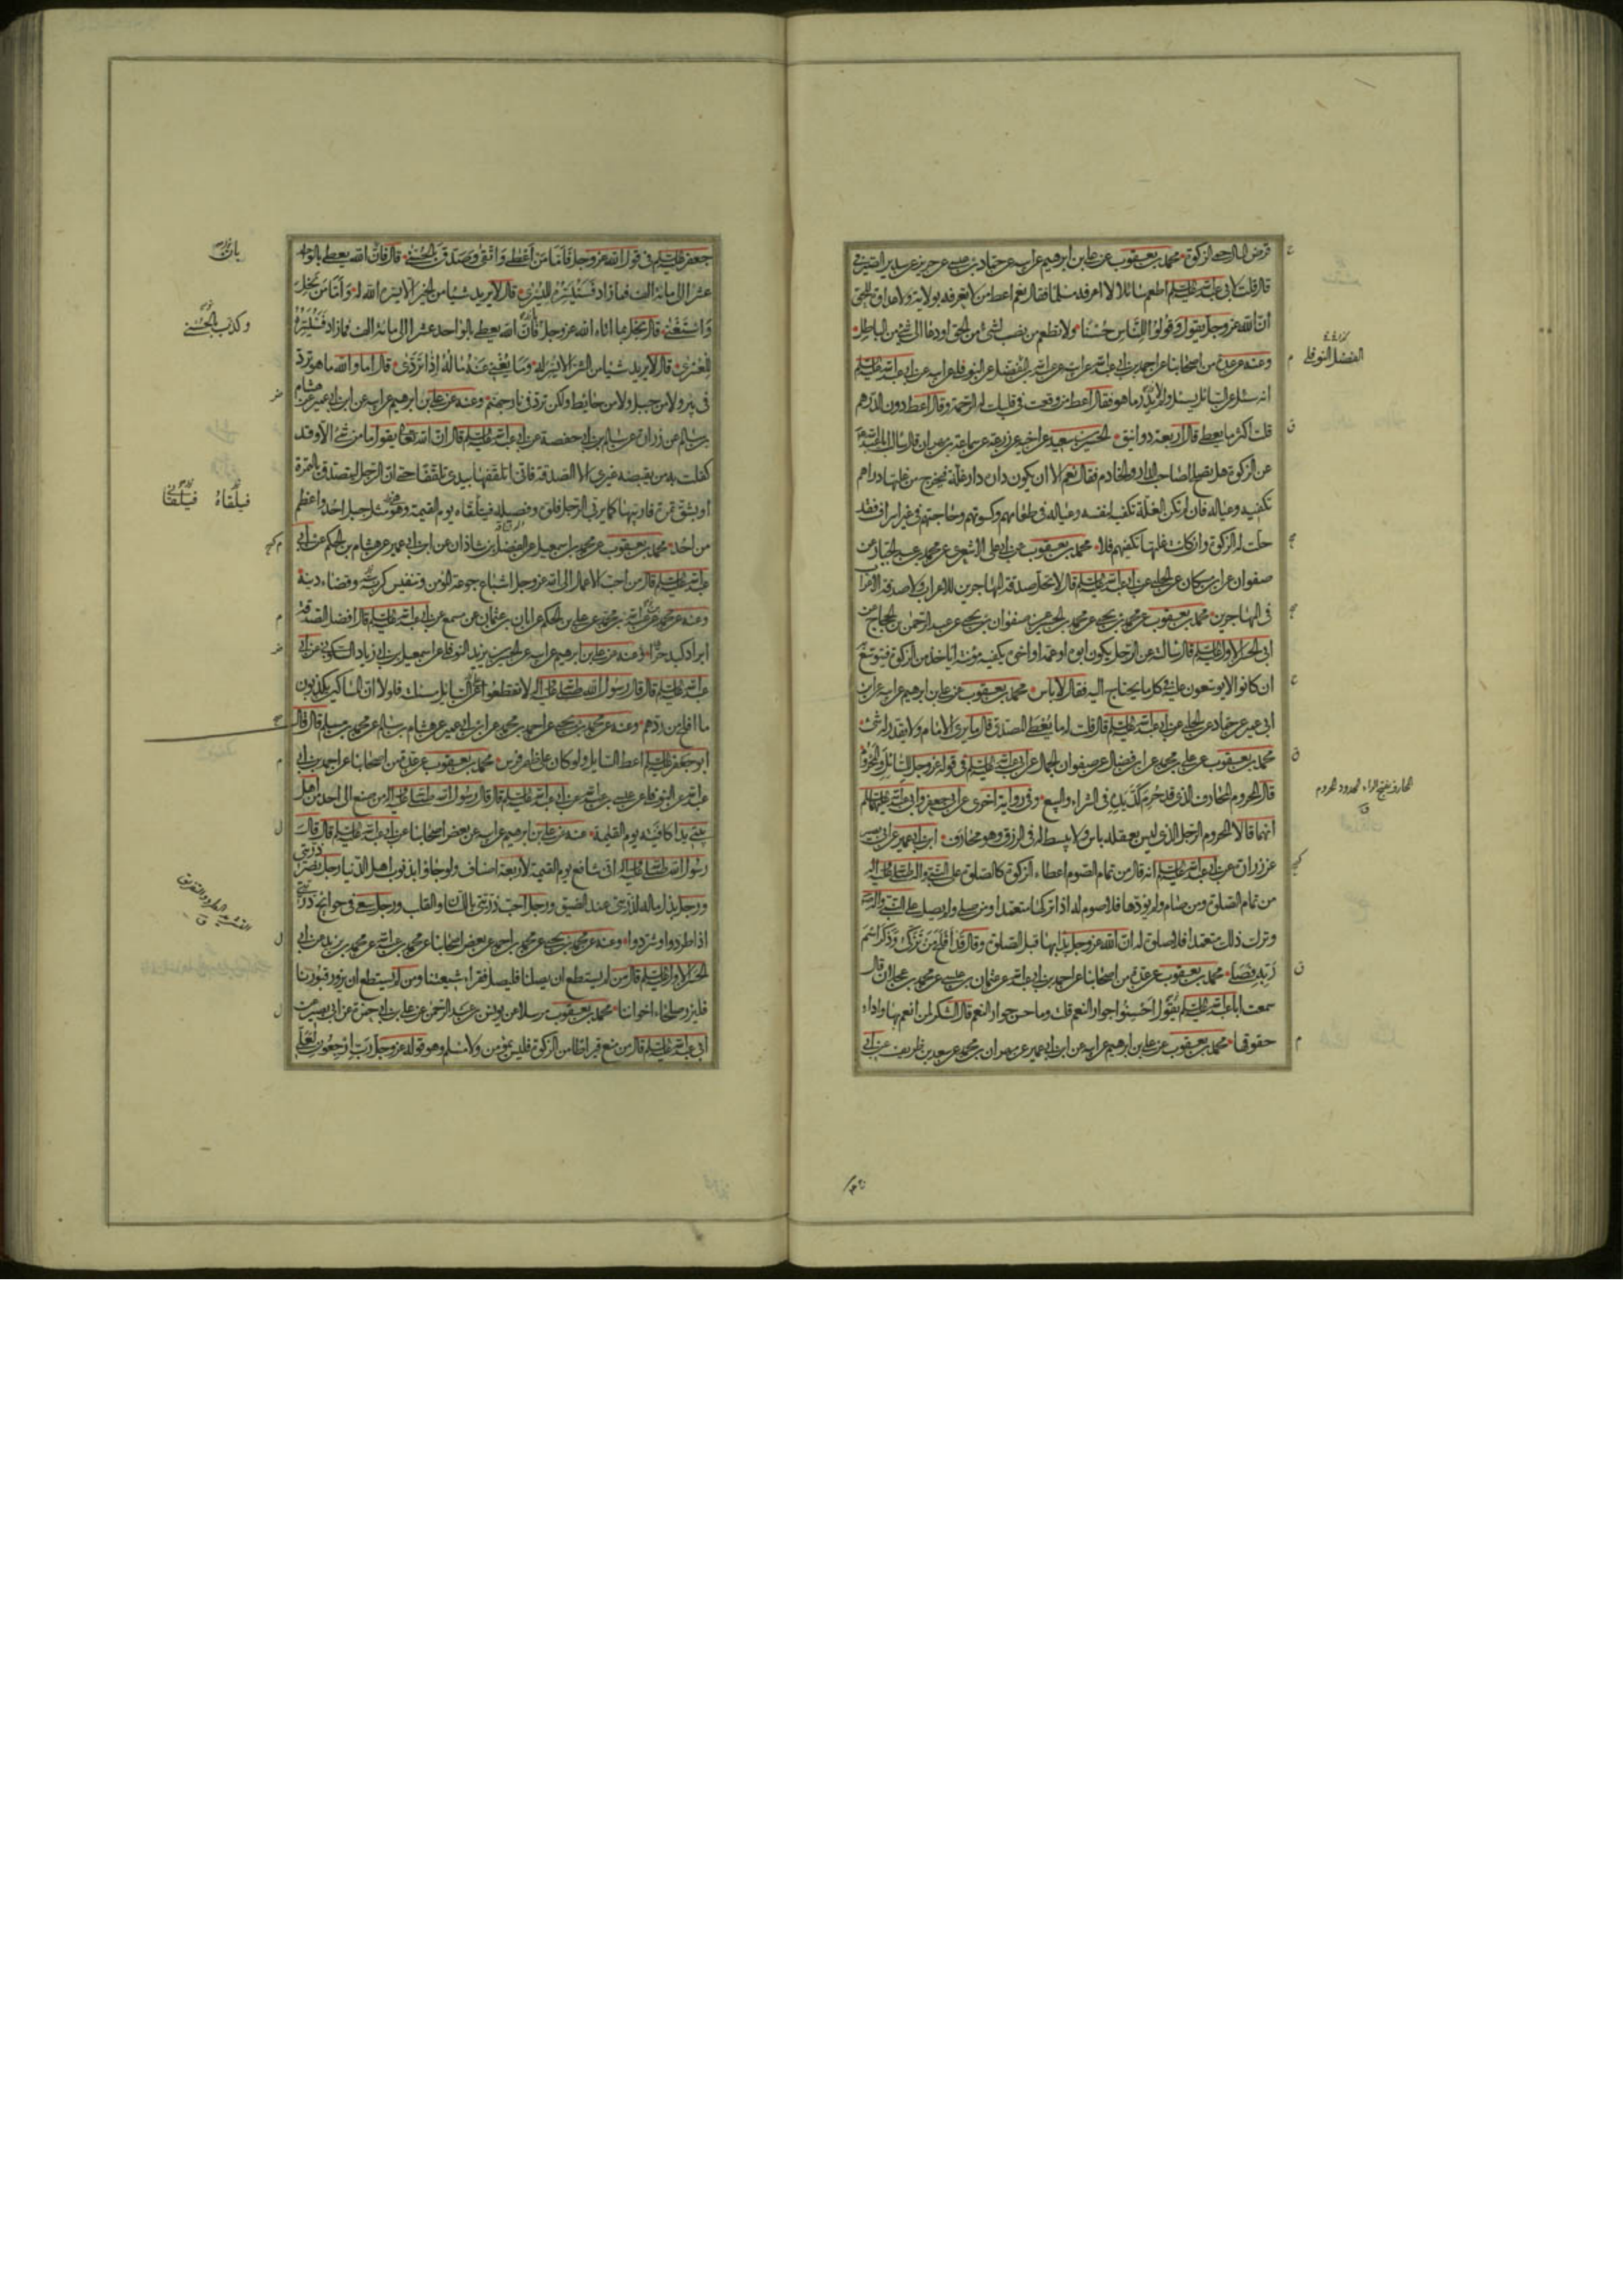 قرض المال حمى الزكوة محمد بن يعقوب عن علي بن ابرهيم عن ابيه عن حماد بن عيسى عن حريز عن سدير الصيرفي
قال قلت لابي عبدالله عليه السلم اطعم سائلا لا اعرفه مسلما فقال نعم اعط من لا تعرفه بولاية ولا عداوة للحق
ان الله عز وجل يقول وَقُولُوا لِلنَّاسِ حُسْنًا ولا تطعم من نصب لشئ من الحق او دعا الى شئ من الباطل
وعنه عن عدة من اصحابنا عن احمد بن ابي عبدالله عن ابيه عن عبدالله بن الفضل عن النوفلي عن ابيه عن ابي عبدالله عليه السلم
انه سئل عن السائل يسئل ولا يدرى ما هو فقال اعط من وقعت في قلبك له الرحمة وقال اعط دون الدرهم
قلت اكثر ما يعطى قال اربعة دوانيق الحسين بن سعيد عن اخيه عن زرعة عن سماعة بن مهران قال سالت ابا عبدالله
عن الزكوة هل تصلح لصاحب الدار والخادم فقال نعم الا ان يكون داره دار غلة فيخرج من غلتها دراهم
تكفيه وعياله فان لم تكن الغلة تكفيه لنفسه وعياله في طعامهم وكسوتهم وحاجتهم في غير اسراف فقد
حلت له الزكوة وان كانت غلتها تكفيهم فلا محمد بن يعقوب عن ابي علي الاشعري عن محمد بن عبد الجبار عن
صفوان عن ابن مسكان عن الحلبي عن ابي عبدالله عليه السلم قال لا تحل صدقة المهاجرين للاعراب ولا صدقة الاعراب
في المهاجرين محمد بن يعقوب عن محمد بن يحيى عن محمد بن الحسين عن صفوان بن يحيى عن عبد الرحمن بن الحجاج عن
ابي الحسن الاول عليه السلم قال سالته عن الرجل يكون ابوه او عمه او اخوه يكفيه مؤنته اياخذ من الزكوة فيتوسع
ان كانوا لا يوسعون عليه في كل ما يحتاج اليه فقال لا باس محمد بن يعقوب عن علي بن ابرهيم عن ابيه عن ابن
ابي عمير عن حماد عن الحلبي عن ابي عبدالله عليه السلم قال قلت له ما يعطى المصدق قال ما يرى الامام ولا يقدر له شئ
محمد بن يعقوب عن علي بن محمد عن ابن فضال عن صفوان الجمال عن ابي عبدالله عليه السلم في قوله عز وجل للسائل والمحروم
قال المحروم المحارف الذي قد حرم كد يده في الشراء والبيع وفي رواية اخرى عن ابي جعفر وابي عبدالله عليهما السلم
انهما قالا المحروم الرجل الذي ليس بعقله باس ولا يبسط له في الرزق وهو محارف ابن ابي عمير عن ابي بصير
عن زرارة عن ابي عبدالله عليه السلم انه قال من تمام الصوم اعطاء الزكوة كالصلوة على النبي صلى الله عليه وآله
من تمام الصلوة ومن صام ولم يؤدها فلا صوم له اذا تركها متعمدا ومن صلى ولم يصل على النبي وآله
وترك ذلك متعمدا فلا صلوة له ان الله عز وجل بدا بها قبل الصلوة وقال قَدْ أَفْلَحَ مَنْ تَزَكَّى وَذَكَرَ اسْمَ
رَبِّهِ فَصَلَّى محمد بن يعقوب عن عدة من اصحابنا عن احمد بن ابي عبدالله عن عثمان بن عيسى عن محمد بن عجلان قال
سمعت ابا عبدالله عليه السلم يقول احسنوا جوار النعم قلت وما حسن جوار النعم قال الشكر لمن انعم بها واداء
حقوقها محمد بن يعقوب عن علي بن ابرهيم عن ابيه عن ابن ابي عمير عن مهران بن محمد عن سعد بن طريف عن ابي
الفضل النوفلي
المحارف بفتح الراء المحدود المحروم
ق
جعفر عليه السلم في قول الله عز وجل فَأَمَّا مَنْ أَعْطَى وَاتَّقَى وَصَدَّقَ بِالْحُسْنَى قال فان الله يعطي بالواحد
عشرا الى مائة الف فما زاد فَسَنُيَسِّرُهُ لِلْيُسْرَى قال لا يريد شيئا من الخير الا يسره الله له وَأَمَّا مَنْ بَخِلَ
وَاسْتَغْنَى قال بخل بما اتاه الله عز وجل فان الله يعطي بالواحد عشرا الى مائة الف فما زاد فَسَنُيَسِّرُهُ
لِلْعُسْرَى قال لا يريد شيئا من الشر الا يسر له وَمَا يُغْنِي عَنْهُ مَالُهُ إِذَا تَرَدَّى قال اما والله ما هو تردى
في بئر ولا من جبل ولا من حايط ولكن تردى في نار جهنم وعنه عن علي بن ابرهيم عن ابيه عن ابن ابي عمير عن هشام
بن سالم عن زرارة عن سالم بن ابي حفصة عن ابي عبدالله عليه السلم قال ان الله تعالى يقول ما من شئ الا وقد
كفلت به من يقبضه غيري الا الصدقة فاني اتلقفها بيدي تلقفا حتى ان الرجل ليتصدق بالتمرة
او بشق تمرة فاربيها كما يربي الرجل فلوه وفصيله فيلقاه يوم القيمة وهو مثل جبل احد واعظم
من احد محمد بن يعقوب عن محمد بن اسمعيل عن الفضل بن شاذان عن ابن ابي عمير عن هشام بن الحكم عن ابي
عبدالله عليه السلم قال من احب الاعمال الى الله عز وجل اشباع جوعة المؤمن وتنفيس كربته وقضاء دينه
وعنه عن محمد بن عبدالله عن علي بن الحكم عن ابان بن عثمان عن سمع عن ابي عبدالله عليه السلم قال افضل الصدقة
ابراد كبد حرا وعنه عن علي بن ابرهيم عن ابيه عن الحسين بن يزيد النوفلي عن اسمعيل بن ابي زياد السكوني عن ابي
عبدالله عليه السلم قال قال رسول الله صلى الله عليه وآله لا تقطعوا على السايل مسئلته فلولا ان المساكين يكذبون
ما افلح من ردهم وعنه عن محمد بن يحيى عن احمد بن محمد عن ابن ابي عمير عن هشام بن سالم عن محمد بن مسلم قال قال
ابو جعفر عليه السلم اعط السايل ولو كان على ظهر فرس محمد بن يعقوب عن عدة من اصحابنا عن احمد بن ابي
عبدالله عن النوفلي عن عيسى بن عبدالله عن ابي عبدالله عليه السلم قال قال رسول الله صلى الله عليه وآله من صنع الى احد من اهل
بيتي يدا كافيته يوم القيمة عنه عن علي بن ابرهيم عن ابيه عن بعض اصحابنا عن ابي عبدالله عليه السلم قال قال
رسول الله صلى الله عليه وآله اني شافع يوم القيمة لاربعة اصناف ولو جاؤا بذنوب اهل الدنيا رجل نصر ذريتي
ورجل بذل ماله لذريتي عند الضيق ورجل احب ذريتي باللسان والقلب ورجل سعى في حوائج ذريتي
اذا طردوا وشردوا وعنه عن محمد بن يحيى عن محمد بن احمد عن بعض اصحابنا عن محمد بن عبدالله عن محمد بن يزيد عن ابي
الحسن الاول عليه السلم قال من لم يستطع ان يصلنا فليصل فقراء شيعتنا ومن لم يستطع ان يزور قبورنا
فليزر صلحاء اخواننا محمد بن يعقوب مرسلا عن يونس بن عبد الرحمن عن علي بن ابي حمزة عن ابي بصير عن
ابي عبدالله عليه السلم قال من منع قيراطا من الزكوة فليس بمؤمن ولا مسلم وهو قوله عز وجل رَبِّ ارْجِعُونِ لَعَلِّي
بان
وكذب بالحسنى
فيلقاه